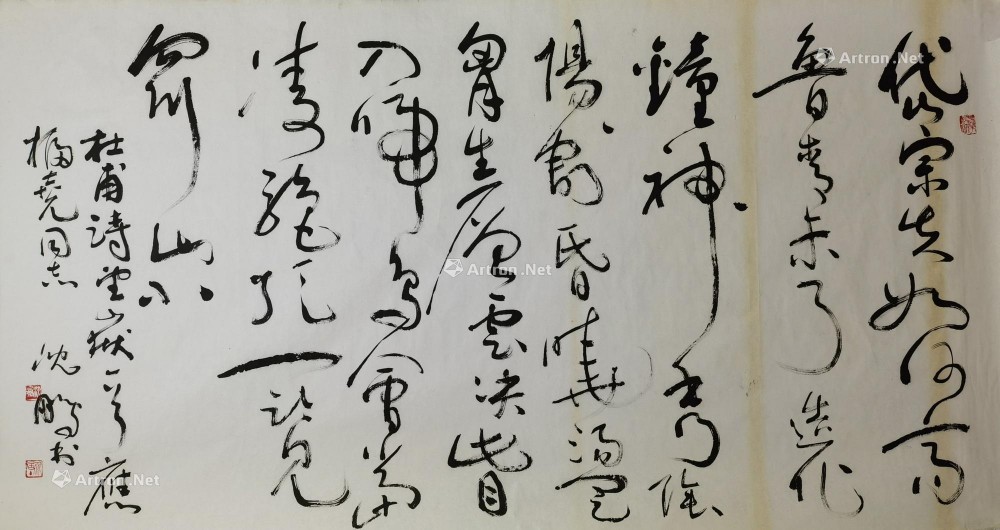 岱宗夫如何齊
魯青未了造化
鐘神秀陰
陽割昏曉盪
胷生層雲決眥
入歸鳥會當
凌絕頂一覽
眾山小
杜甫詩望嶽一首應
堯同志 沈鵬書
Artron.Net
Artron.Net
Artron.Net
Artron.Net
Artron.Net